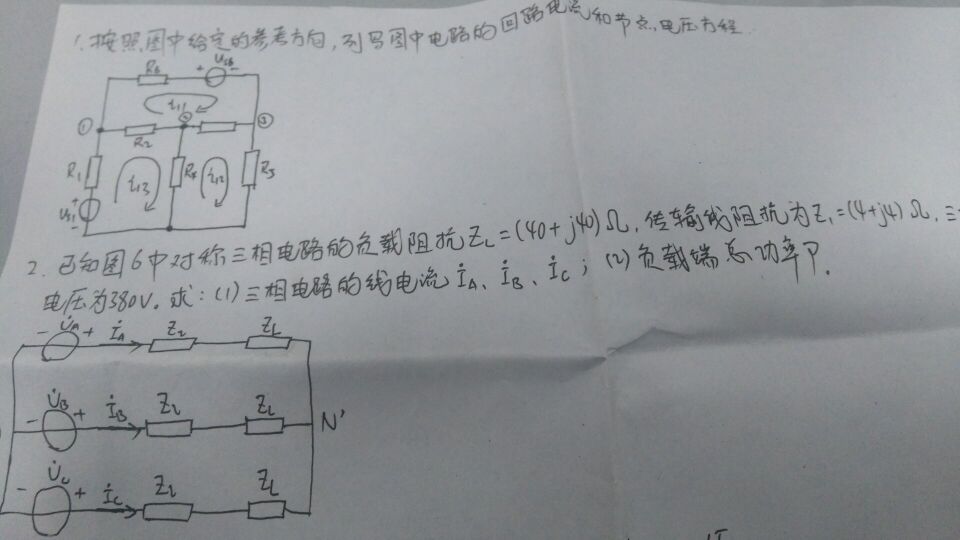 1. 按照图中给定的参考方向，列写图中电路的回路电流和节点电压方程.
R6 + Us6 -
① il1 ② ③
R2
R1 R4 R3
il3 il2
+ Us1 -
2. 已知图6中对称三相电路的负载阻抗ZL=(40+j40)Ω, 传输线阻抗为Zl=(4+j4)Ω, 三
电压为380V. 求: (1)三相电路的线电流İA、İB、İC; (2)负载端总功率P.
- U̇A + İA Zl ZL
- U̇B + İB Zl ZL N'
- U̇C + İC Zl ZL